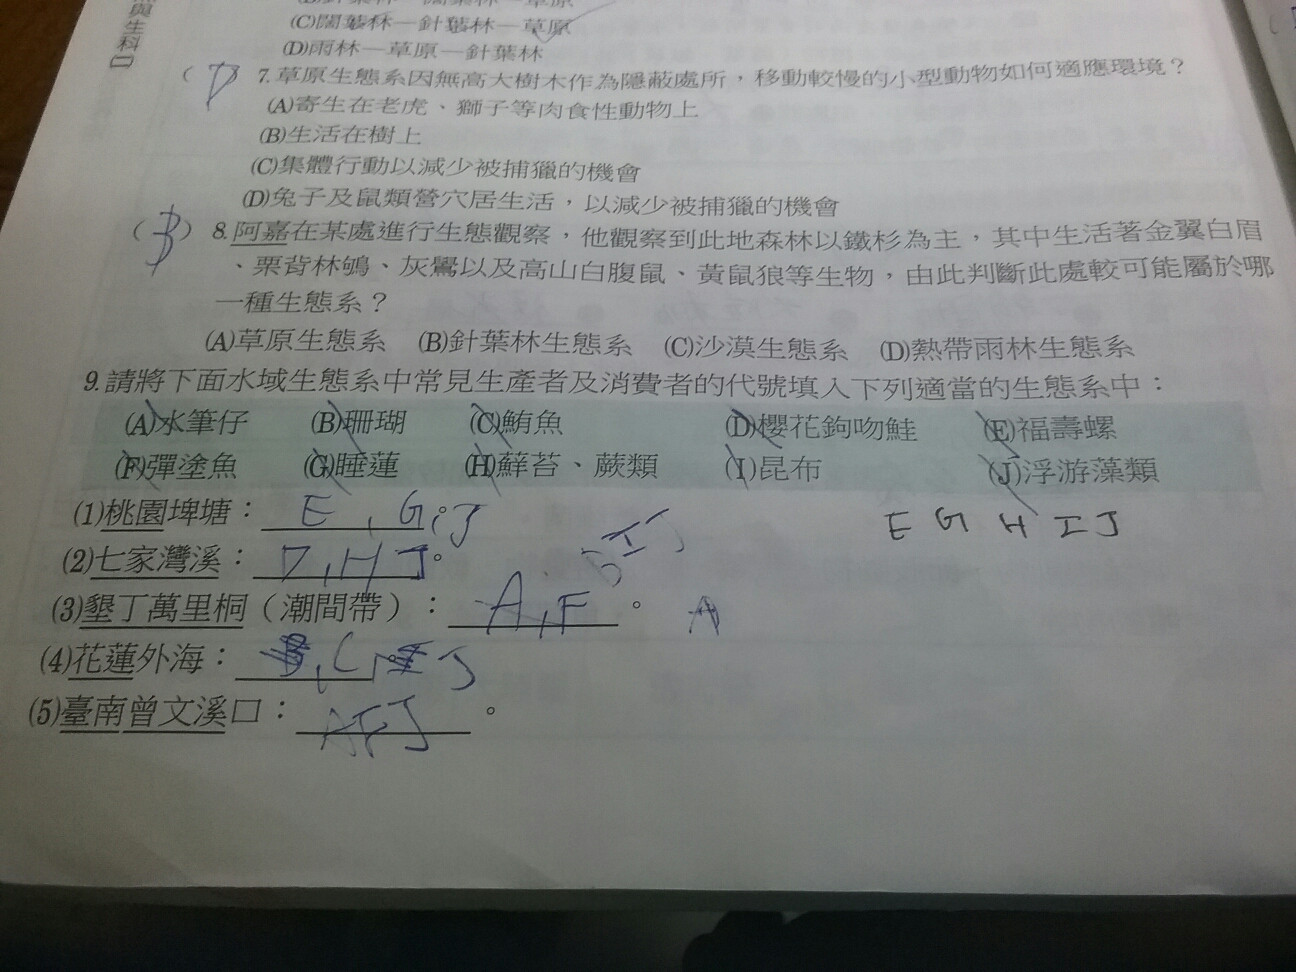 與生科
(C)闊葉林—針葉林—草原
(D)雨林—草原—針葉林
( D ) 7.草原生態系因無高大樹木作為隱蔽處所，移動較慢的小型動物如何適應環境？
(A)寄生在老虎、獅子等肉食性動物上
(B)生活在樹上
(C)集體行動以減少被捕獵的機會
(D)兔子及鼠類營穴居生活，以減少被捕獵的機會
( B ) 8.阿嘉在某處進行生態觀察，他觀察到此地森林以鐵杉為主，其中生活著金翼白眉
、栗背林鴝、灰鷽以及高山白腹鼠、黃鼠狼等生物，由此判斷此處較可能屬於哪
一種生態系？
(A)草原生態系 (B)針葉林生態系 (C)沙漠生態系 (D)熱帶雨林生態系
9.請將下面水域生態系中常見生產者及消費者的代號填入下列適當的生態系中：
(A)水筆仔 (B)珊瑚 (C)鮪魚 (D)櫻花鉤吻鮭 (E)福壽螺
(F)彈塗魚 (G)睡蓮 (H)蘚苔、蕨類 (I)昆布 (J)浮游藻類
(1)桃園埤塘：E , G , J
E G H I J
(2)七家灣溪：D , H J 。
I J
(3)墾丁萬里桐（潮間帶）：A , F 。 A
(4)花蓮外海：B , C , J
(5)臺南曾文溪口：A F J 。